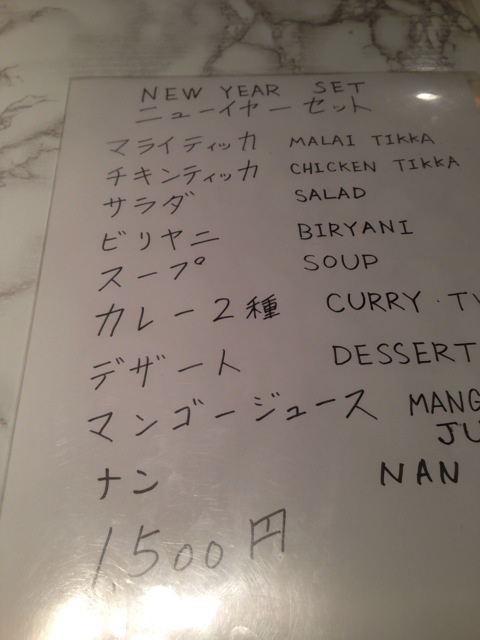 NEW YEAR SET
ニューイヤーセット
マライティッカ MALAI TIKKA
チキンティッカ CHICKEN TIKKA
サラダ SALAD
ビリヤニ BIRYANI
スープ SOUP
カレー2種 CURRY
デザート DESSERT
マンゴージュース MANG
JU
ナン NAN
1,500円